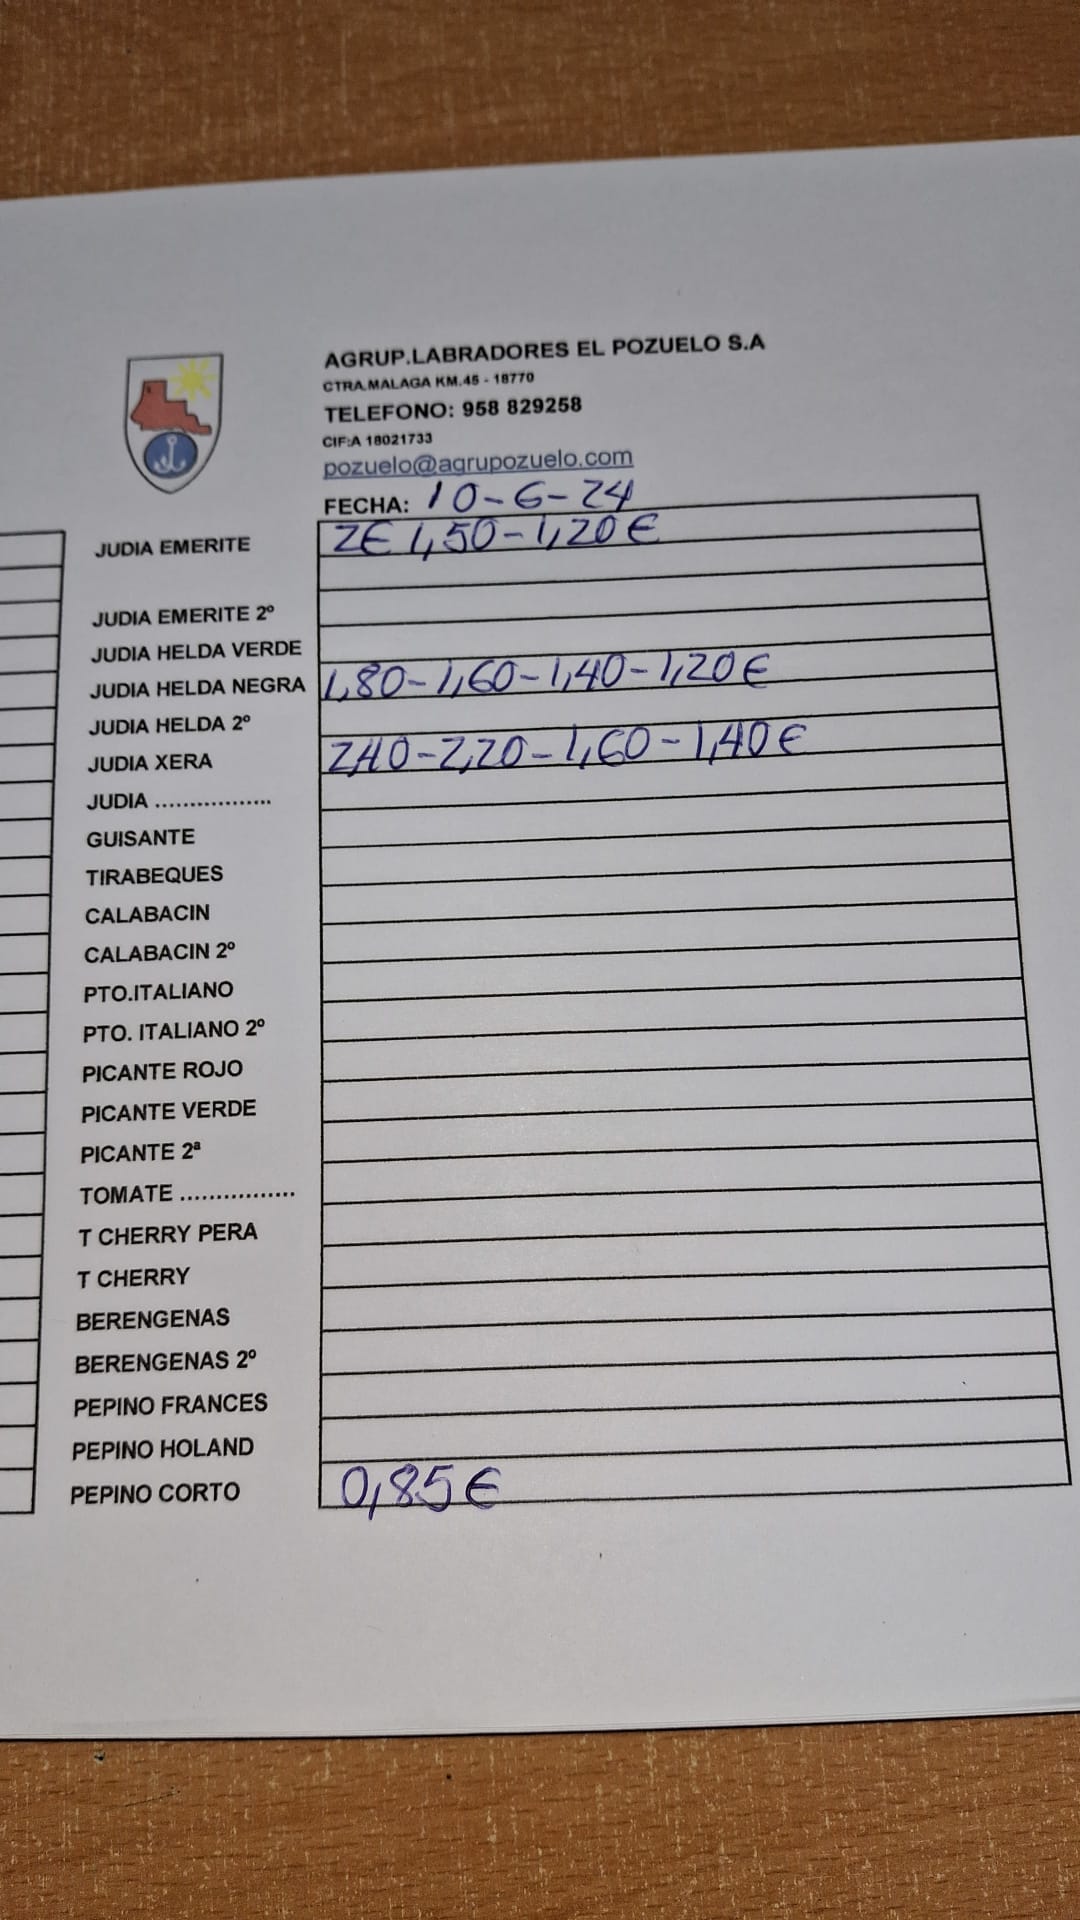 AGRUP.LABRADORES EL POZUELO S.A
CTRA.MALAGA KM.45 - 18770
TELEFONO: 958 829258
CIF:A 18021733
pozuelo@agrupozuelo.com
FECHA: 10-6-24
JUDIA EMERITE 2€ 1,50-1,20€
JUDIA EMERITE 2º
JUDIA HELDA VERDE
JUDIA HELDA NEGRA 1,80-1,60-1,40-1,20€
JUDIA HELDA 2º
JUDIA XERA 2,40-2,20-1,60-1,40€
JUDIA .................
GUISANTE
TIRABEQUES
CALABACIN
CALABACIN 2º
PTO.ITALIANO
PTO. ITALIANO 2º
PICANTE ROJO
PICANTE VERDE
PICANTE 2ª
TOMATE ................
T CHERRY PERA
T CHERRY
BERENGENAS
BERENGENAS 2º
PEPINO FRANCES
PEPINO HOLAND
PEPINO CORTO 0,85€